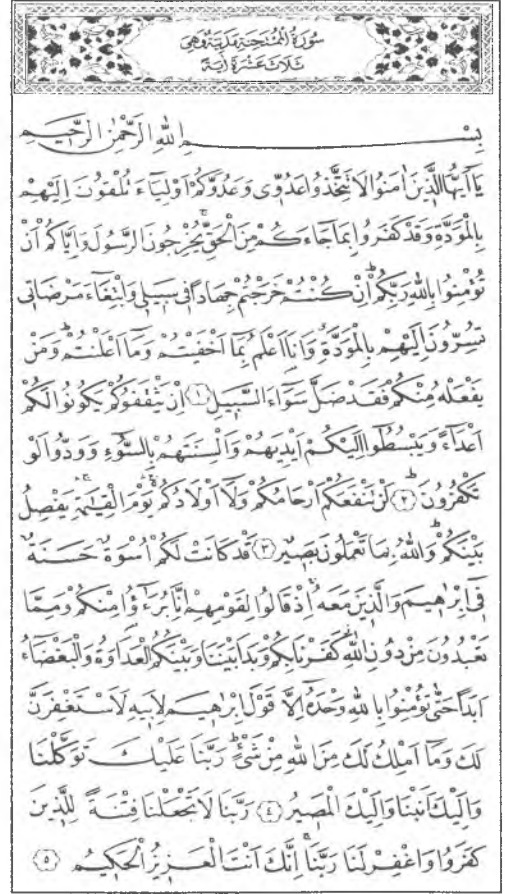 سُورَةُ الْمُمْتَحِنَةِ مَدَنِيَّةٌ وَهِىَ
ثَلَاثَ عَشْرَةَ اٰيَةً
بِسْمِ اللّٰهِ الرَّحْمٰنِ الرَّحٖيمِ
يَٓا اَيُّهَا الَّذٖينَ اٰمَنُوا لَا تَتَّخِذُوا عَدُوّٖى وَعَدُوَّكُمْ اَوْلِيَٓاءَ تُلْقُونَ اِلَيْهِمْ
بِالْمَوَدَّةِ وَقَدْ كَفَرُوا بِمَا جَٓاءَكُمْ مِنَ الْحَقِّۚ يُخْرِجُونَ الرَّسُولَ وَاِيَّاكُمْ اَنْ
تُؤْمِنُوا بِاللّٰهِ رَبِّكُمْؕ اِنْ كُنْتُمْ خَرَجْتُمْ جِهَادًا فٖى سَبٖيلٖى وَابْتِغَٓاءَ مَرْضَاتٖى
تُسِرُّونَ اِلَيْهِمْ بِالْمَوَدَّةِ وَاَنَا۬ اَعْلَمُ بِمَٓا اَخْفَيْتُمْ وَمَٓا اَعْلَنْتُمْؕ وَمَنْ
يَفْعَلْهُ مِنْكُمْ فَقَدْ ضَلَّ سَوَٓاءَ السَّبٖيلِ ﴿١﴾ اِنْ يَثْقَفُوكُمْ يَكُونُوا لَكُمْ
اَعْدَٓاءً وَيَبْسُطُٓوا اِلَيْكُمْ اَيْدِيَهُمْ وَاَلْسِنَتَهُمْ بِالسُّٓوءِ وَوَدُّوا لَوْ
تَكْفُرُونَؕ ﴿٢﴾ لَنْ تَنْفَعَكُمْ اَرْحَامُكُمْ وَلَٓا اَوْلَادُكُمْۚ يَوْمَ الْقِيٰمَةِۚ يَفْصِلُ
بَيْنَكُمْؕ وَاللّٰهُ بِمَا تَعْمَلُونَ بَصٖيرٌ ﴿٣﴾ قَدْ كَانَتْ لَكُمْ اُسْوَةٌ حَسَنَةٌ
فٖٓى اِبْرٰهٖيمَ وَالَّذٖينَ مَعَهُۚ اِذْ قَالُوا لِقَوْمِهِمْ اِنَّا بُرَءٰٓؤُ۬ا مِنْكُمْ وَمِمَّا
تَعْبُدُونَ مِنْ دُونِ اللّٰهِؗ كَفَرْنَا بِكُمْ وَبَدَا بَيْنَنَا وَبَيْنَكُمُ الْعَدَاوَةُ وَالْبَغْضَٓاءُ
اَبَدًا حَتّٰى تُؤْمِنُوا بِاللّٰهِ وَحْدَهُٓ اِلَّا قَوْلَ اِبْرٰهٖيمَ لِاَبٖيهِ لَاَسْتَغْفِرَنَّ
لَكَ وَمَٓا اَمْلِكُ لَكَ مِنَ اللّٰهِ مِنْ شَیْءٍؕ رَبَّنَا عَلَيْكَ تَوَكَّلْنَا
وَاِلَيْكَ اَنَبْنَا وَاِلَيْكَ الْمَصٖيرُ ﴿٤﴾ رَبَّنَا لَا تَجْعَلْنَا فِتْنَةً لِلَّذٖينَ
كَفَرُوا وَاغْفِرْ لَنَا رَبَّنَاۚ اِنَّكَ اَنْتَ الْعَزٖيزُ الْحَكٖيمُ ﴿٥﴾